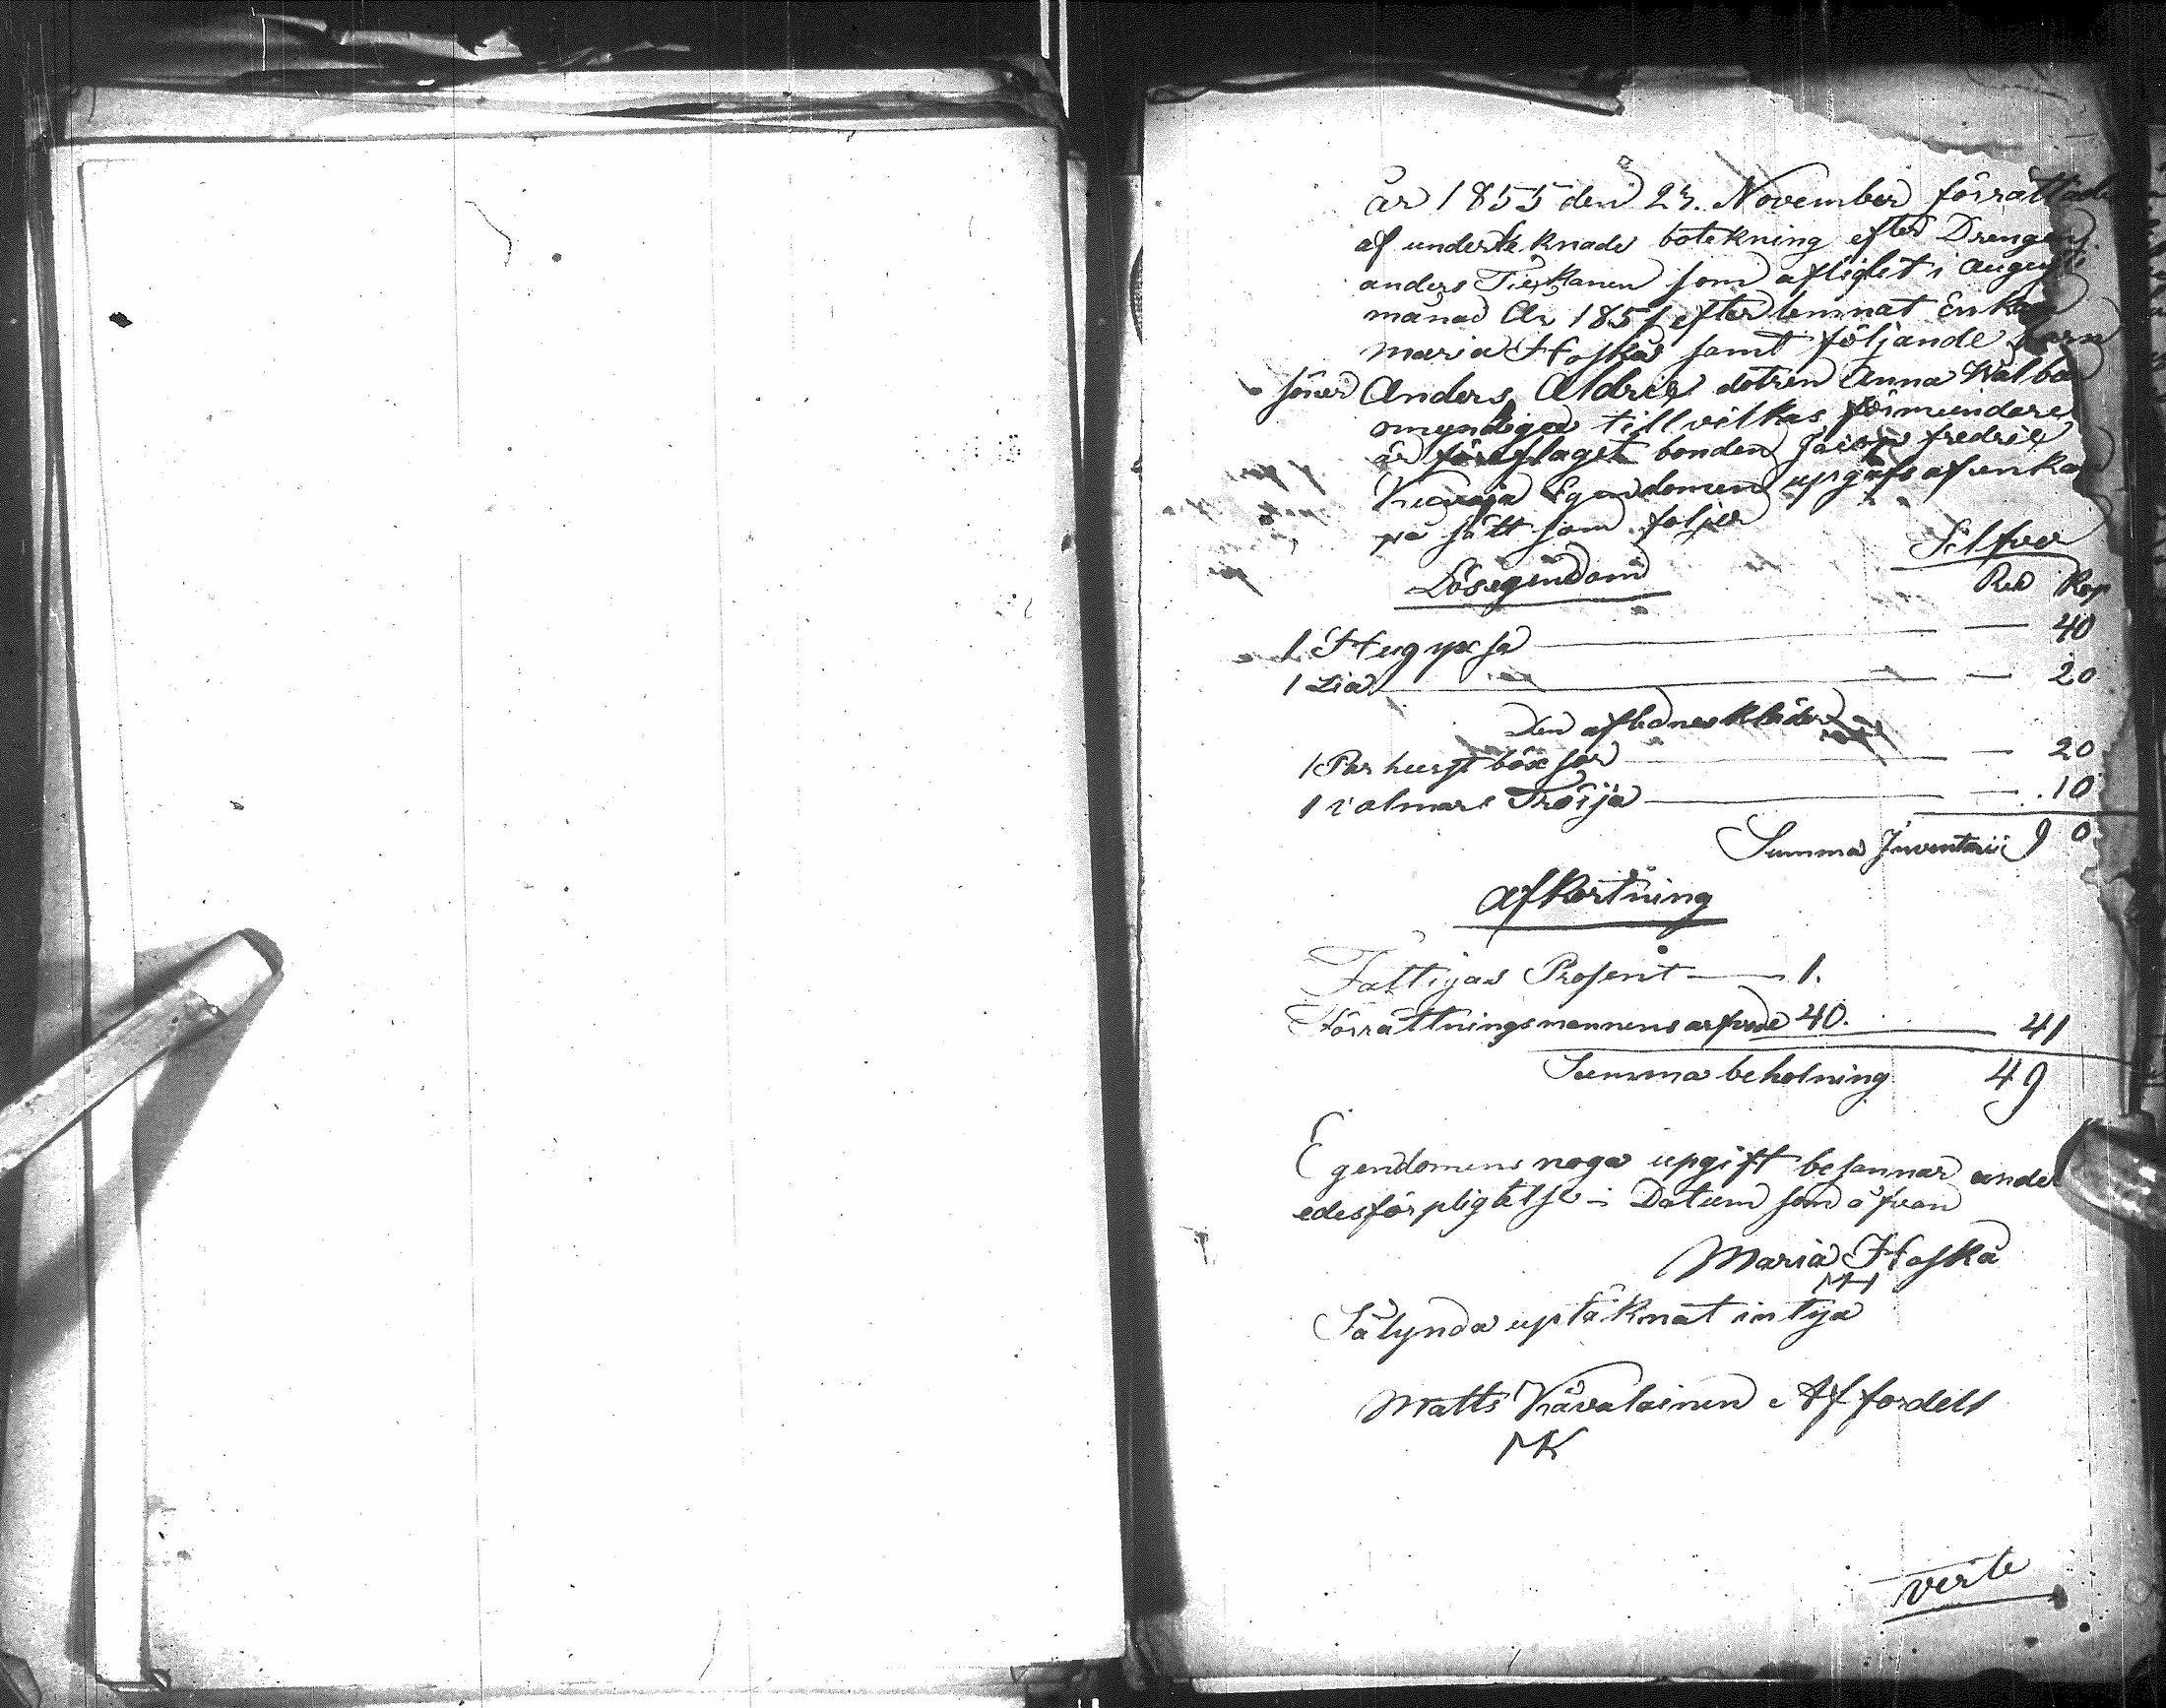 År 1855 den 23. November förrättade
af underteknade botekning efter Drengen
anders Tiexkanen som aflighet i augusti
månad År 1851 efterlemnat Enkan
Maria Hoskå samt följande barn
söner Anders, Aldrie dotren Anna Walbor
omyndiga till vilkas förmundare
är föreslaget bonden fredrik
Egendomen upgafs af enkan
på sått som foljer
Silfver
Lösegendom
Rub Kop
1 Hugyxsa — — 40
1 Lia — — 20
Den aflednes kläder
1 Par hurst böxsor — 20
1 valmars Tröija — — 10
Summa Inventarii 90
Afkortning
Fattigas Prosent — 1.
Förrättningsmennens arfvode 40. — 41
Summa beholning 49
Egendomens noga upgift besannar under
edesförpligtelse i Datum som åfvan
Maria Hoskå
MH
Sålynda uptäknat intyja
Matts Kävalainen Af fordell
MK
verte